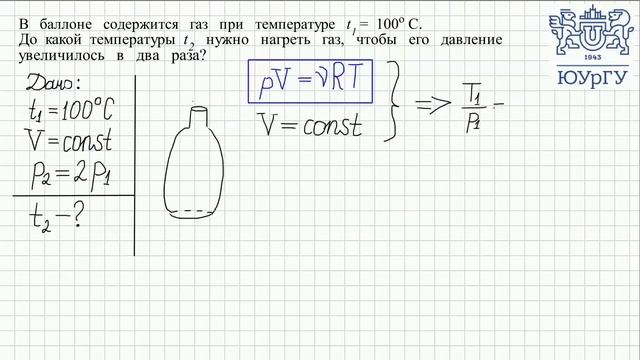 В баллоне содержится газ при температуре t₁ = 100° С.
До какой температуры t₂ нужно нагреть газ, чтобы его давление
увеличилось в два раза?
1943
ЮУрГУ
Дано:
t₁ = 100°C
V = const
p₂ = 2p₁
t₂ – ?
pV = νRT
V = const
} => T₁/p₁ =